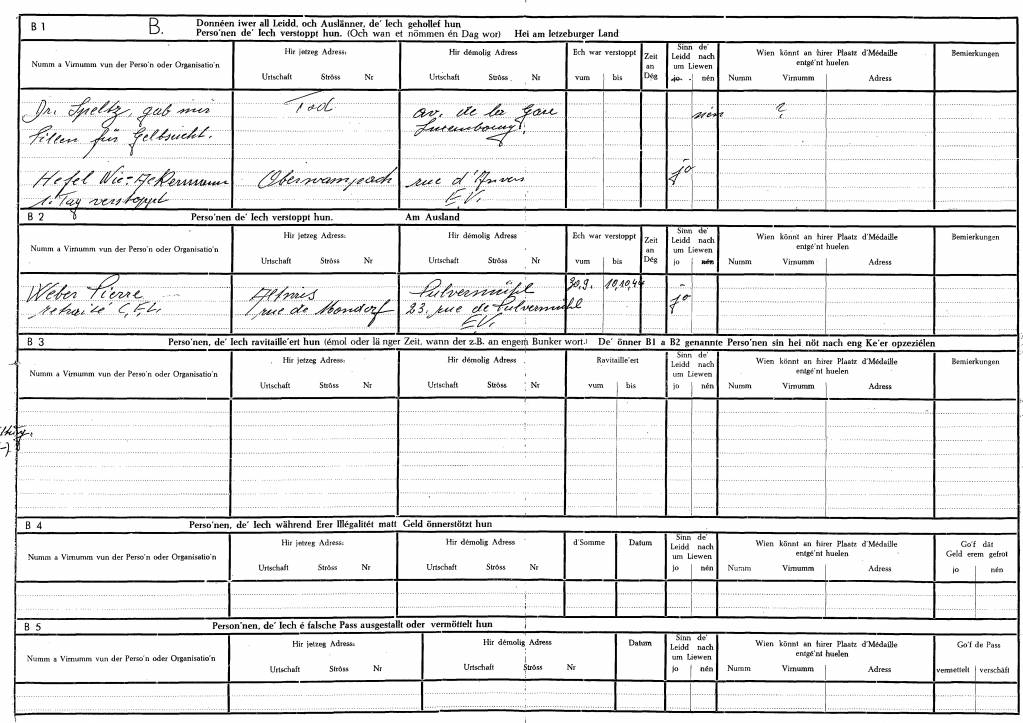 B 1
B.
Donnéen iwer all Leidd, och Auslänner, de' Iech gehollef hun
Perso'nen de' Iech verstoppt hun. (Och wan et nömmen én Dag wor) Hei am letzeburger Land
Numm a Virnumm vun der Perso'n oder Organisatio'n
Hir jetzeg Adress:
Urtschaft Ströss Nr
Hir démolig Adress
Urtschaft Ströss. Nr
Ech war verstoppt
vum bis
Zeit
an
Dég
Sinn de'
Leidd nach
um Liewen
jo nén
Wien könnt an hirer Plaatz d'Médaille
entgé'nt huelen
Numm Virnumm Adress
Bemierkungen
Dr. Speltz, gab mir Tod av. de la Gare nén ?
Pillen für Gelbsucht. Luxembourg.
Hefel Nic-Ackermann Oberwampach rue d'Anvers jo
1. Tag verstoppt E.V.
B 2
Perso'nen de' Iech verstoppt hun. Am Ausland
Numm a Virnumm vun der Perso'n oder Organisatio'n
Hir jetzeg Adress:
Urtschaft Ströss Nr
Hir démolig Adress
Urtschaft Ströss Nr
Ech war verstoppt
vum bis
Zeit
an
Dég
Sinn de'
Leidd nach
um Liewen
jo nén
Wien könnt an hirer Plaatz d'Médaille
entgé'nt huelen
Numm Virnumm Adress
Bemierkungen
Weber Pierre Pulvermühl 30.9. 10.10.44 jo
retraité C.F.L. rue de Mondorf 23, rue de Pulvermühl
E.V.
B 3
Perso'nen, de' Iech ravitaille'ert hun (émol oder länger Zeit, wann der z.B. an engem Bunker wort.) De' önner B1 a B2 genannte Perso'nen sin hei nöt nach eng Ke'er opzeziélen
Numm a Virnumm vun der Perso'n oder Organisatio'n
Hir jetzeg Adress:
Urtschaft Ströss Nr
Hir démolig Adress
Urtschaft Ströss Nr
Ravitaille'ert
vum bis
Sinn de'
Leidd nach
um Liewen
jo nén
Wien könnt an hirer Plaatz d'Médaille
entgé'nt huelen
Numm Virnumm Adress
Bemierkungen
B 4
Perso'nen, de' Iech während Erer Illégalitét matt Geld önnerstötzt hun
Numm a Virnumm vun der Perso'n oder Organisatio'n
Hir jetzeg Adress:
Urtschaft Ströss Nr
Hir démolig Adress
Urtschaft Ströss Nr
d'Somme
Datum
Sinn de'
Leidd nach
um Liewen
jo nén
Wien könnt an hirer Plaatz d'Médaille
entgé'nt huelen
Numm Virnumm Adress
Go'f dât
Geld erem gefrot
jo nén
B 5
Person'nen, de' Iech é falsche Pass ausgestallt oder vermöttelt hun
Numm a Virnumm vun der Perso'n oder Organisatio'n
Hir jetzeg Adress:
Urtschaft Ströss Nr
Hir démolig Adress
Urtschaft Ströss Nr
Datum
Sinn de'
Leidd nach
um Liewen
jo nén
Wien könnt an hirer Plaatz d'Médaille
entgé'nt huelen
Numm Virnumm Adress
Go'f de Pass
vermettelt verschâft